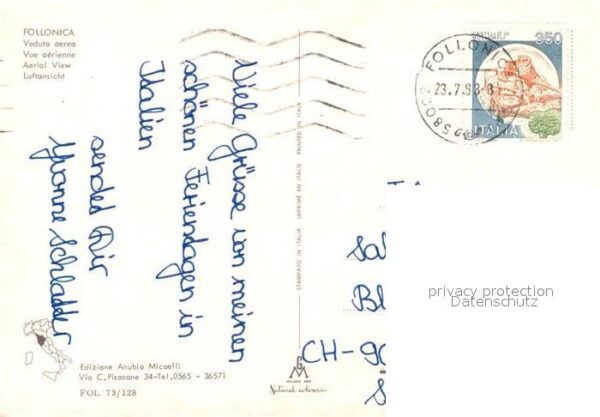 FOLLONICA
Veduta aerea
Vue aérienne
Aerial View
Luftansicht
Viele Grüsse von meinen
schönen Ferientagen in
Italien
sendet Dir
Yvonne Schladder
STAMPATO IN ITALIA IMPRIMÉ EN ITALIE PRINTED IN ITALY
350
ITALIA
FOLLONICA
23.7.98-8
58022
privacy protection
Datenschutz
CH-90
Edizione Anubia Micaelli
Via C. Pisacane 34-Tel. 0565 - 36571
FOL 73/128
Natural colours